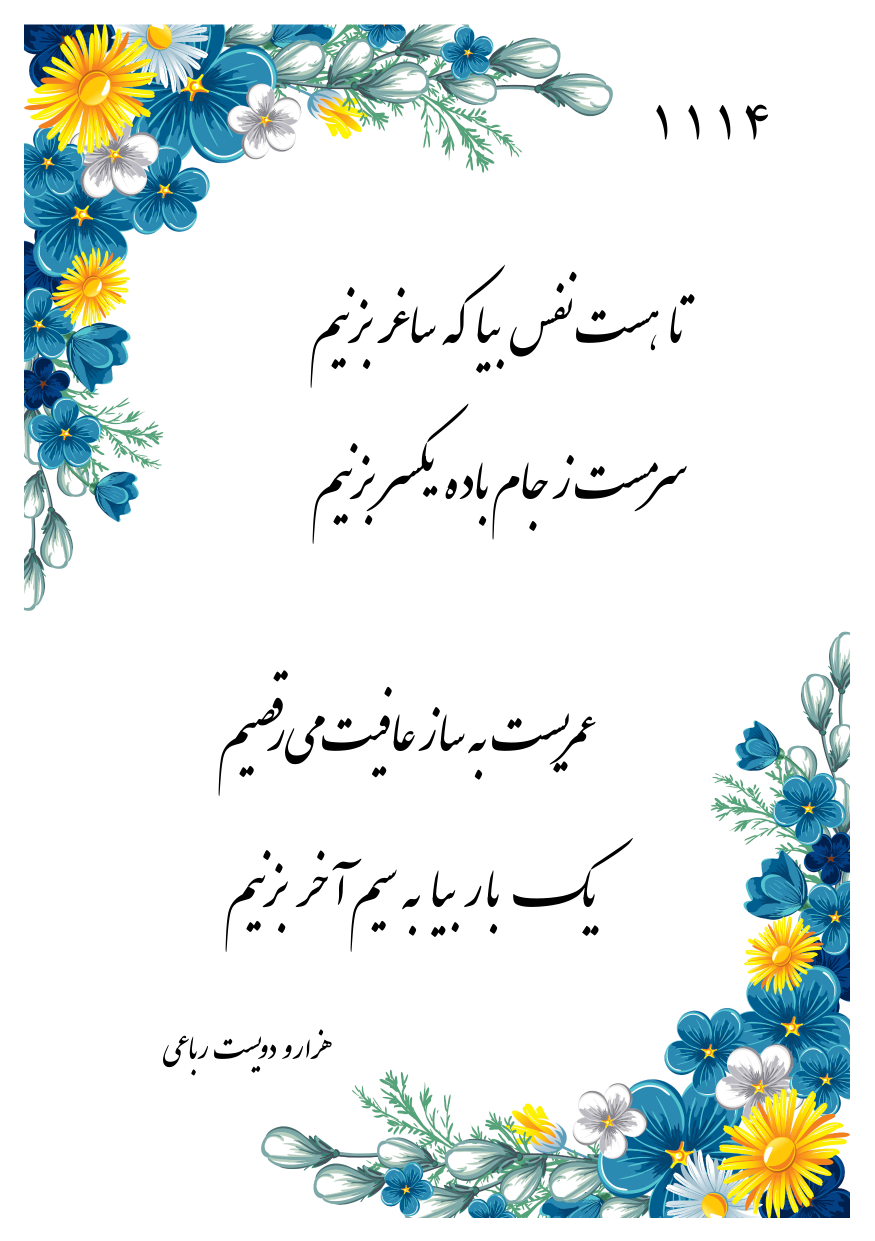 ۱۱۱۴
تا هست نفس بیا که ساغر بزنیم
سرمست ز جام باده یکسر بزنیم
عمریست به ساز عافیت می رقصیم
یک بار بیا به سیم آخر بزنیم
هزار و دویست رباعی